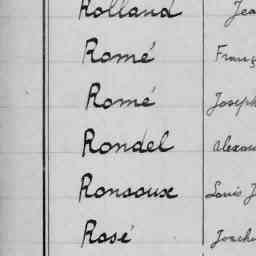 Rolland Jea
Romé Franç
Romé Joseph
Rondel Alexan
Ronsoux Louis J
Rosé Joach